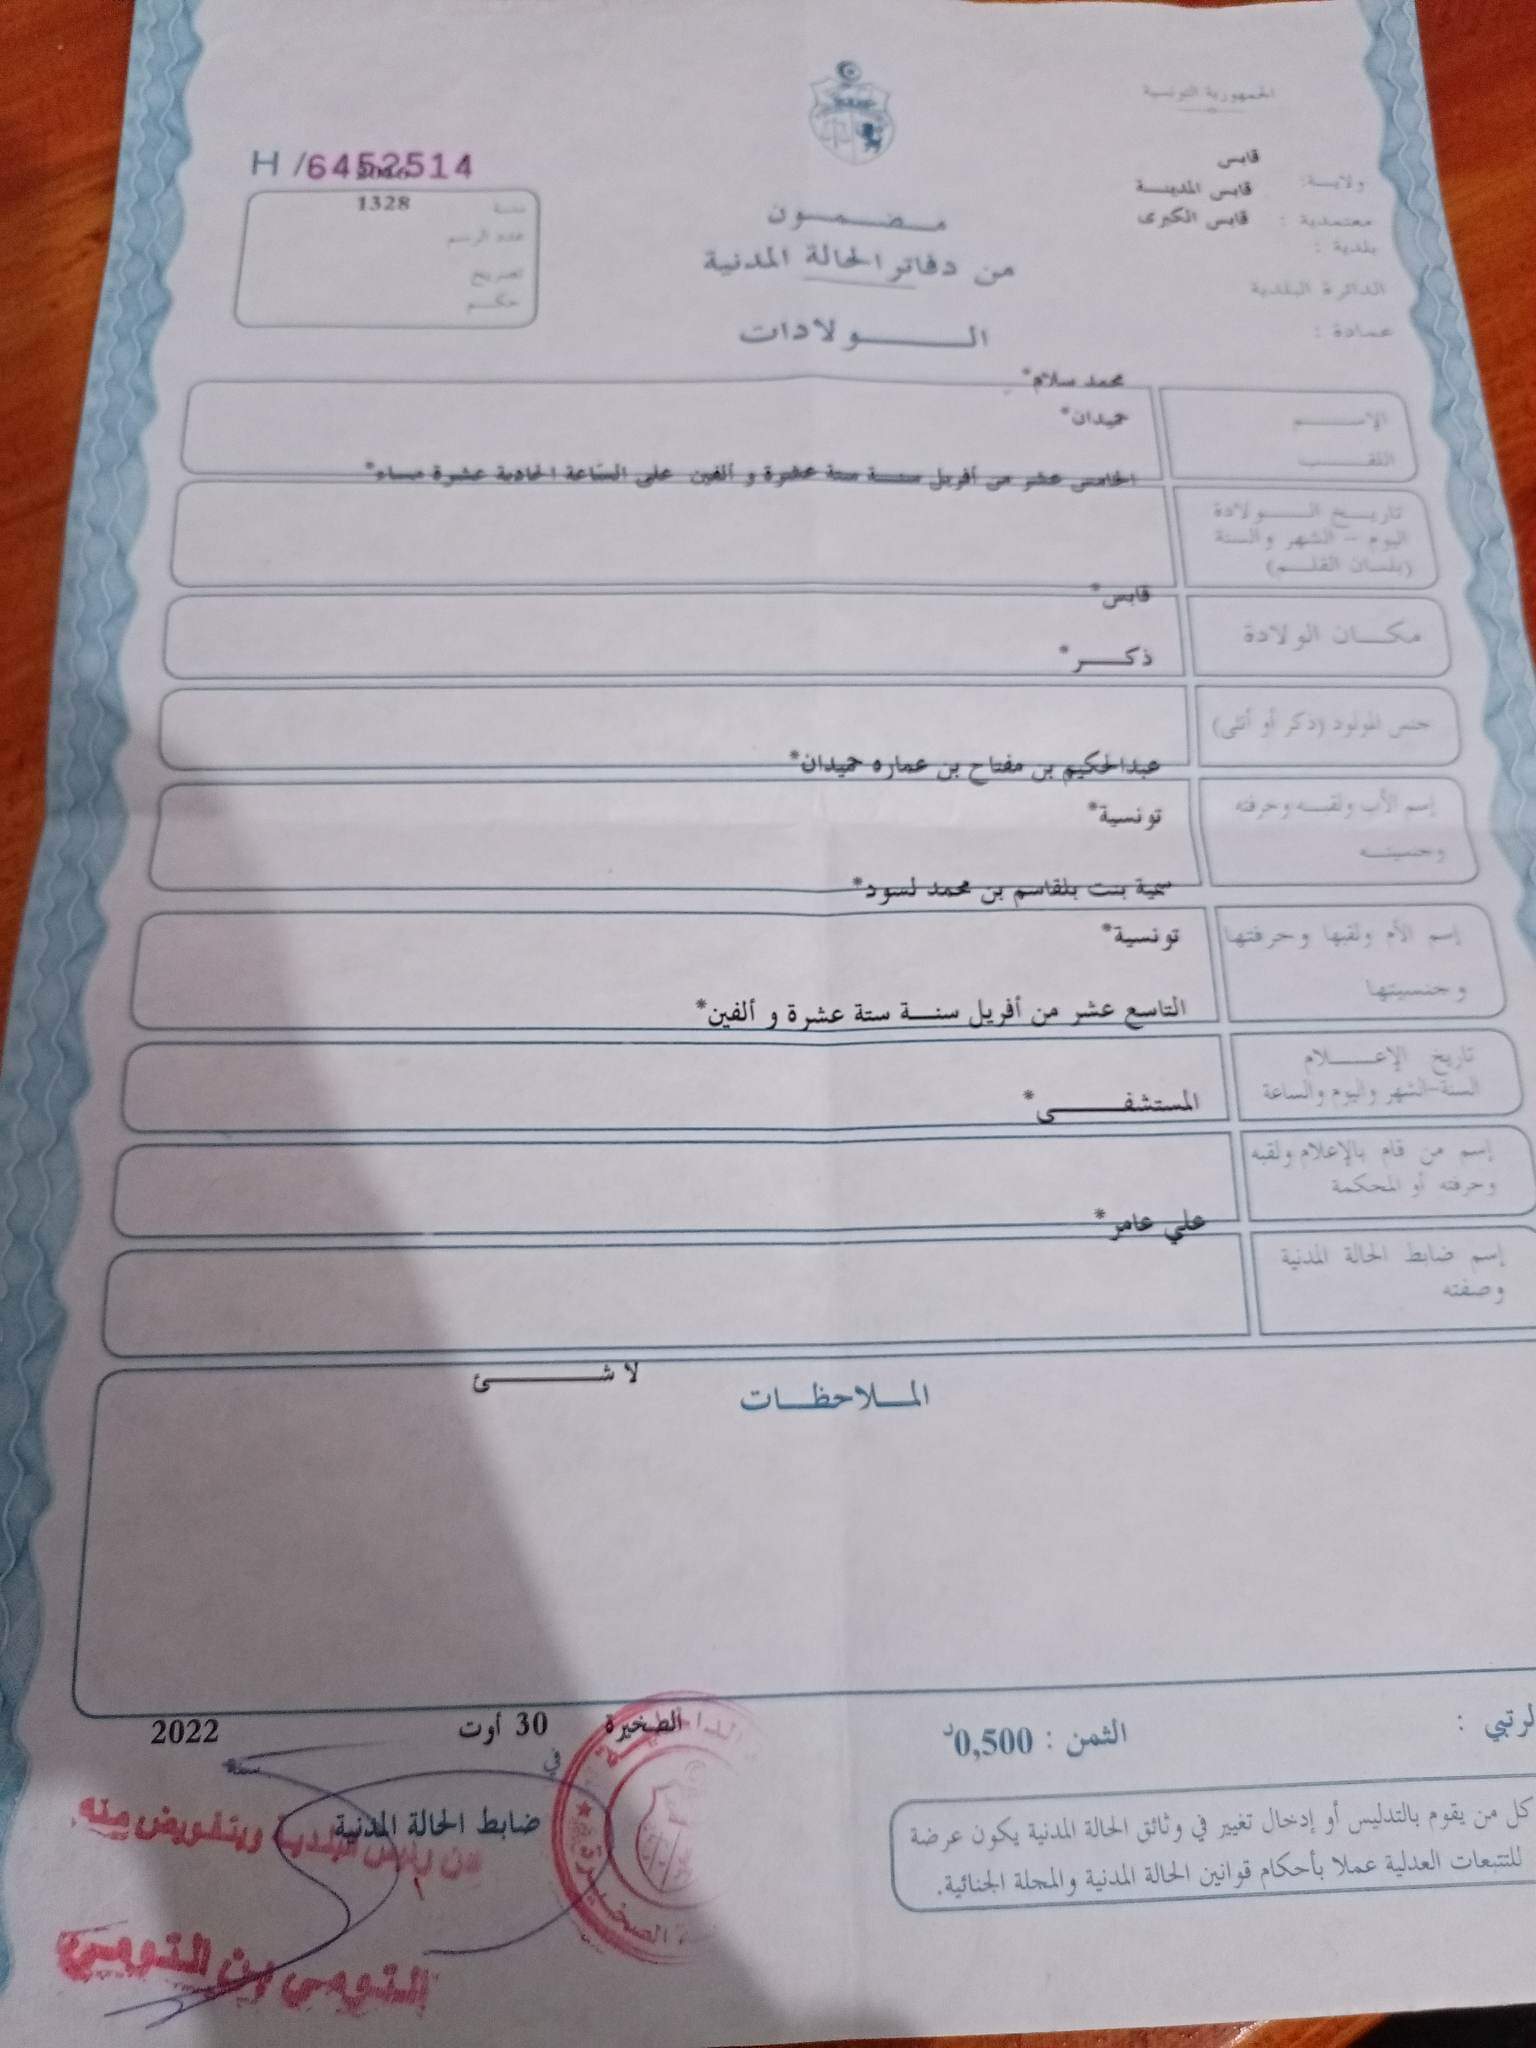 الجمهورية التونسية
قابس
ولاية:
قابس المدينة
معتمدية :
قابس الكبرى
بلدية :
الدائرة البلدية
عمادة :
H /6452514
2016
سنة
1328
عدد الرسم
تصريح
حكم
مضمون
من دفاتر الحالة المدنية
الولادات
محمد سلام*
الإسم
حميدان*
اللقب
الخامس عشر من أفريل سنة ستة عشرة و ألفين على الساعة الحادية عشرة مساء*
تاريخ الولادة
اليوم - الشهر والسنة
(بلسان القلم)
قابس*
مكان الولادة
ذكر*
جنس المولود (ذكر أو أنثى)
عبدالحكيم بن مفتاح بن عماره حميدان*
إسم الأب ولقبه وحرفته
تونسية*
وجنسيته
سمية بنت بلقاسم بن محمد لسود*
إسم الأم ولقبها وحرفتها
تونسية*
وجنسيتها
التاسع عشر من أفريل سنة ستة عشرة و ألفين*
تاريخ الإعلام
السنة-الشهر واليوم والساعة
المستشفى*
إسم من قام بالإعلام ولقبه
وحرفته أو المحكمة
علي عامر*
إسم ضابط الحالة المدنية
وصفته
لا شئ
الملاحظات
الثمن : 0,500د
الصخيرة
في
30 أوت
سنة
2022
ضابط الحالة المدنية
عن رئيس البلدية وبتفويض منه
كل من يقوم بالتدليس أو إدخال تغيير في وثائق الحالة المدنية يكون عرضة
للتتبعات العدلية عملا بأحكام قوانين الحالة المدنية والمجلة الجنائية.